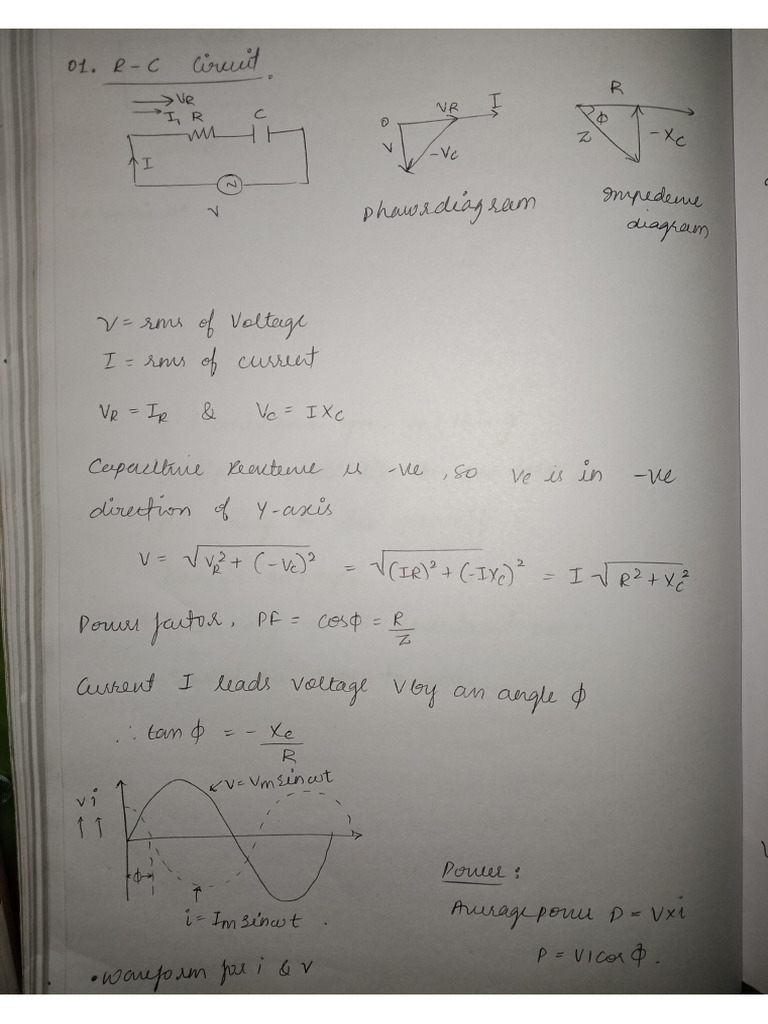 01. R-C Circuit.
VR
I, R C
I
V
O VR I
V -Vc
phasordiagram
R
Z ϕ -Xc
Impedence
diagram
V = rms of Voltage
I = rms of current
VR = IR & Vc = IXc
Capacitive reactence is -ve, so Vc is in -ve
direction of Y-axis
V = √VR² + (-Vc)² = √(IR)² + (-IXc)² = I√R² + Xc²
Power factor, PF = cosϕ = R/Z
Current I leads voltage V by an angle ϕ
∴ tan ϕ = - Xc/R
v i
↑ ↑
V = Vm sinωt
ϕ
i = Im sinωt.
• Waveform for i & v
Power:
Average power P = V×i
P = VI cos ϕ.